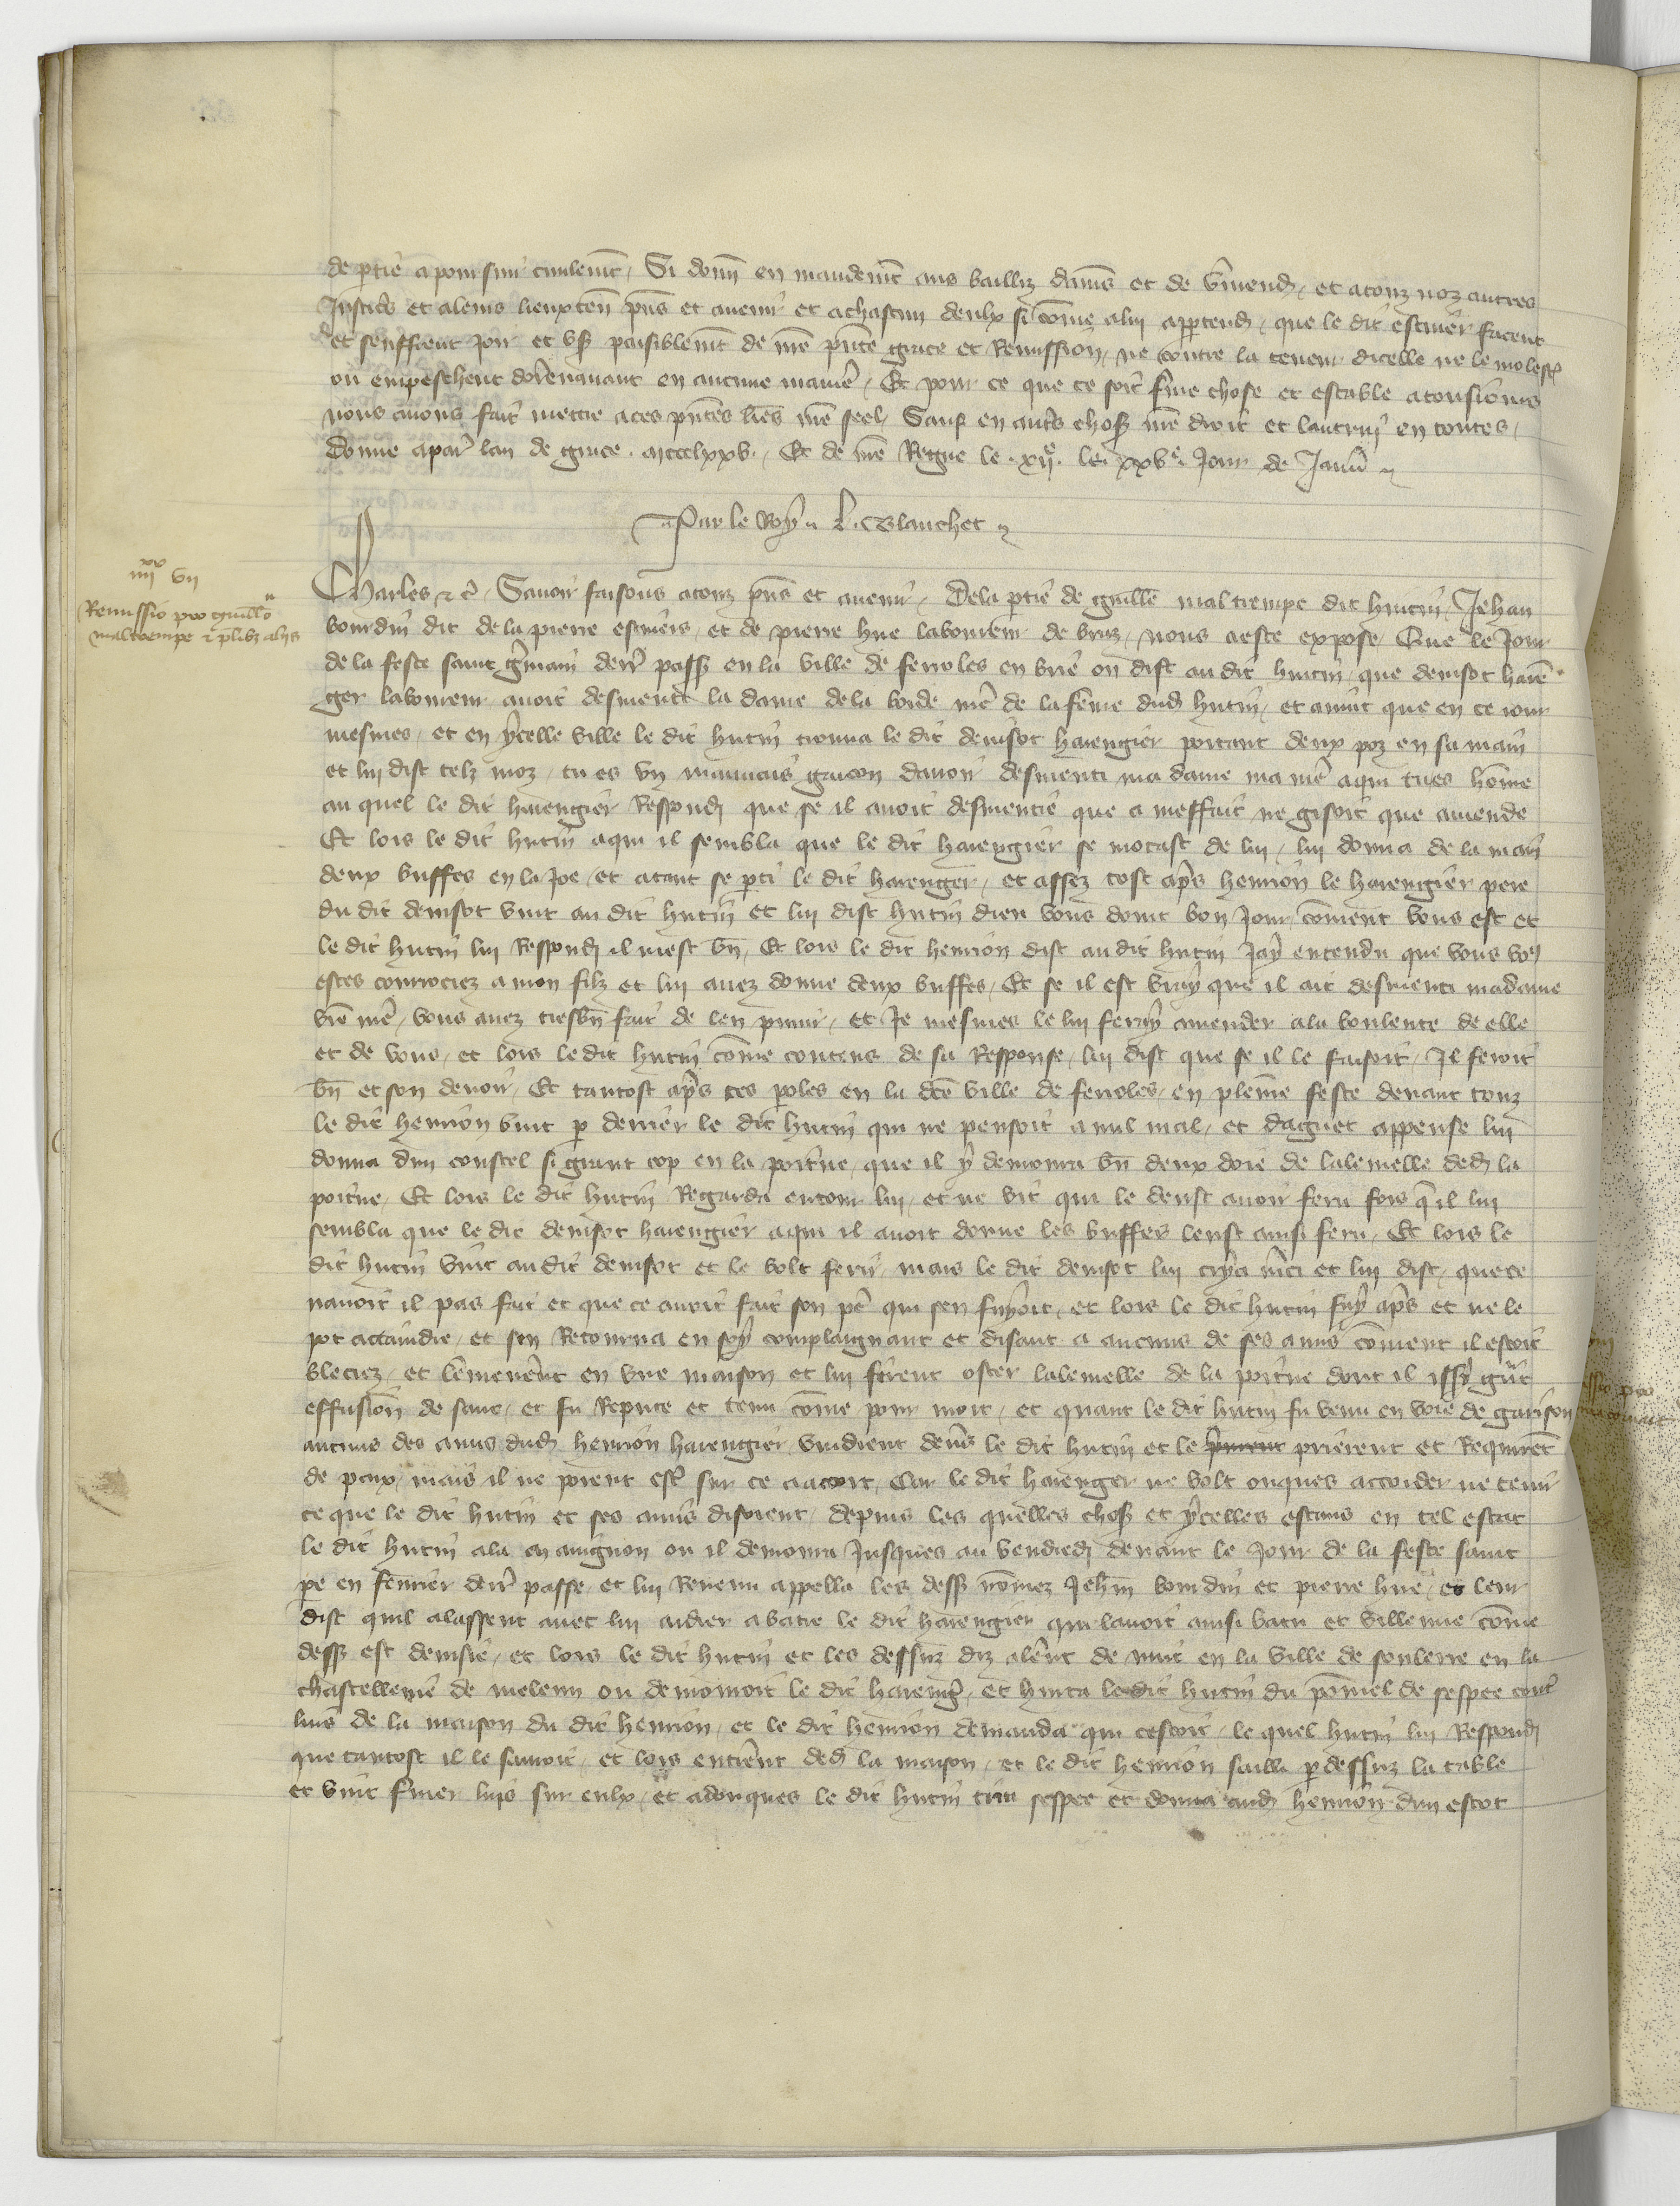 de ptie a poursuir civilemt / Si donn en mandemt aus bailliz damiens et de vermend / et a touz noz autres
Justic et a leurs lieuxten pns et avenir et a chascun deulx si come a lui appertend / que le dit escuier facent
et seuffrent Joir et us paisiblemt de nre pnte grace et Remission / ne contre la teneur dicelle ne le molest
ou empeschent dorenavant en aucune manie / Et pour ce que ce soit ferme chose et estable a tousiours
nous avons fait mettre a ces pntes lres nre seel / Sauf en autres choses nre droit et lautruy en toutes /
Donne a paris lan de grace . mccclxxv . Et de nre Regne le . xije . le . xxve . Jour de Janvr
Par le Roy L. Blanchet
iiijxx vij
Remissio pro Guillo
maltrempe et plibz alijs
Charles etc. Savoir faisons a touz pns et avenir / De la ptie de guille mal trempe dit hutin / Jehan
bourdin dit de la pierre escuiers / et de pierre hue laboureur de braz / nous a este expose / Que le Jour
de la feste saint germain derr passe en la ville de ferroles en brie on dist au dit hutin / que denisot haren
ger laboureur avoit desmenti la dame de la borde mere de la feme dud hutin / et avint que en ce iour
mesmes / et en ycelle ville le dit hutin trouva le dit denisot harengier portant deux poz en sa main
et lui dist telz moz / tu es un mauvais garcon davoir desmenti ma dame ma mere a qui tu es home
au quel le dit harengier Respond que se il avoit desmentie que a meffait ne gisoit que amende
Et lors le dit hutin a qui il sembla que le dit harengier se mocast de lui / lui donna de la main
deux buffes en la Joe / et a tant se pti le dit harenger / et assez tost apres henrion le harengier pere
du dit denisot vint au dit hutin et lui dist hutin dieu vous doint bon Jour / coment vous est et
le dit hutin lui Respond il mest bn / Et lors le dit henrion dist au dit hutin Jay entendu que vous vo
estes courrociez a mon filz et lui avez donne deux buffes / Et se il est vray que il ait desmenti madame
vre mere / vous avez tresbn fait de len punir / et Je mesmes le lui feray amender a la voulente de elle
et de vous / et lors le dit hutin come contens de sa Response / lui dist que se il le faisoit / Il feroit
bn et son devoir / Et tantost apres ces poles en la dce ville de ferroles / en pleine feste devant touz
le dit henrion vint p derrier le dit hutin qui ne pensoit a nul mal / et daguet appense lui
donna dun coustel si grant cop en la poitrine / que il y demoura bn deux doie de lalemelle ded la
poitrine / Et lors le dit hutin Regarda entour lui / et ne vit qui le deust avoir feru fors q il lui
sembla que le dit denisot harengier a qui il avoit donne les buffes leust ainsi feru / Et lors le
dit hutin vint au dit denisot et le volt ferir / mais le dit denisot lui crya merci et lui dist / que ce
navoit il pas fait et que ce avoit fait son pere qui sen fuyoit / et lors le dit hutin fuy apres et ne le
pot attaindre / et sen Retourna en soy complaignant et disant a aucuns de ses amis coment il estoit
bleciez / et lemenerent en une maison et lui firent oster lalemelle de la poitrine dont il issy grant
effusion de sanc / et fu Repute et tenu come pour mort / et quant le dit hutin fu venu en voie de garison
aucuns des amis dud henrion harengier vindrent devers le dit hutin et le prierent et Requirent
de paix / mais il ne porent estre sur ce a acort / Car le dit harenger ne volt onques accorder ne tenir
ce que le dit hutin et ses amis disoient / depuis les quelles choses et ycelles estans en tel estat
le dit hutin ala en avignon ou il demoura Jusques au vendredi devant le Jour de la feste saint
pe en fevrier derr passe / et lui Revenu appella les dess nomez Jehan bourdin et pierre hue / et leur
dist quil alassent avec lui aidier a batre le dit harengier qui lavoit ainsi batu et villenne come
dess est devisie / et lors le dit hutin et les dessuz diz alerent de nuit en la ville de soulerre en la
chastellenie de meleun ou demouroit le dit harenger / et hurta le dit hutin du pomel de sespee contre
luis de la maison du dit henrion / et le dit henrion demanda qui cestoit / le quel hutin lui Respond
que tantost il le sauroit / et lors entrerent ded la maison / et le dit henrion sailli p dessuz la table
et vint fmer luis sur eulx / et adonques le dit hutin tira sespee et donna aud henrion dun estoc